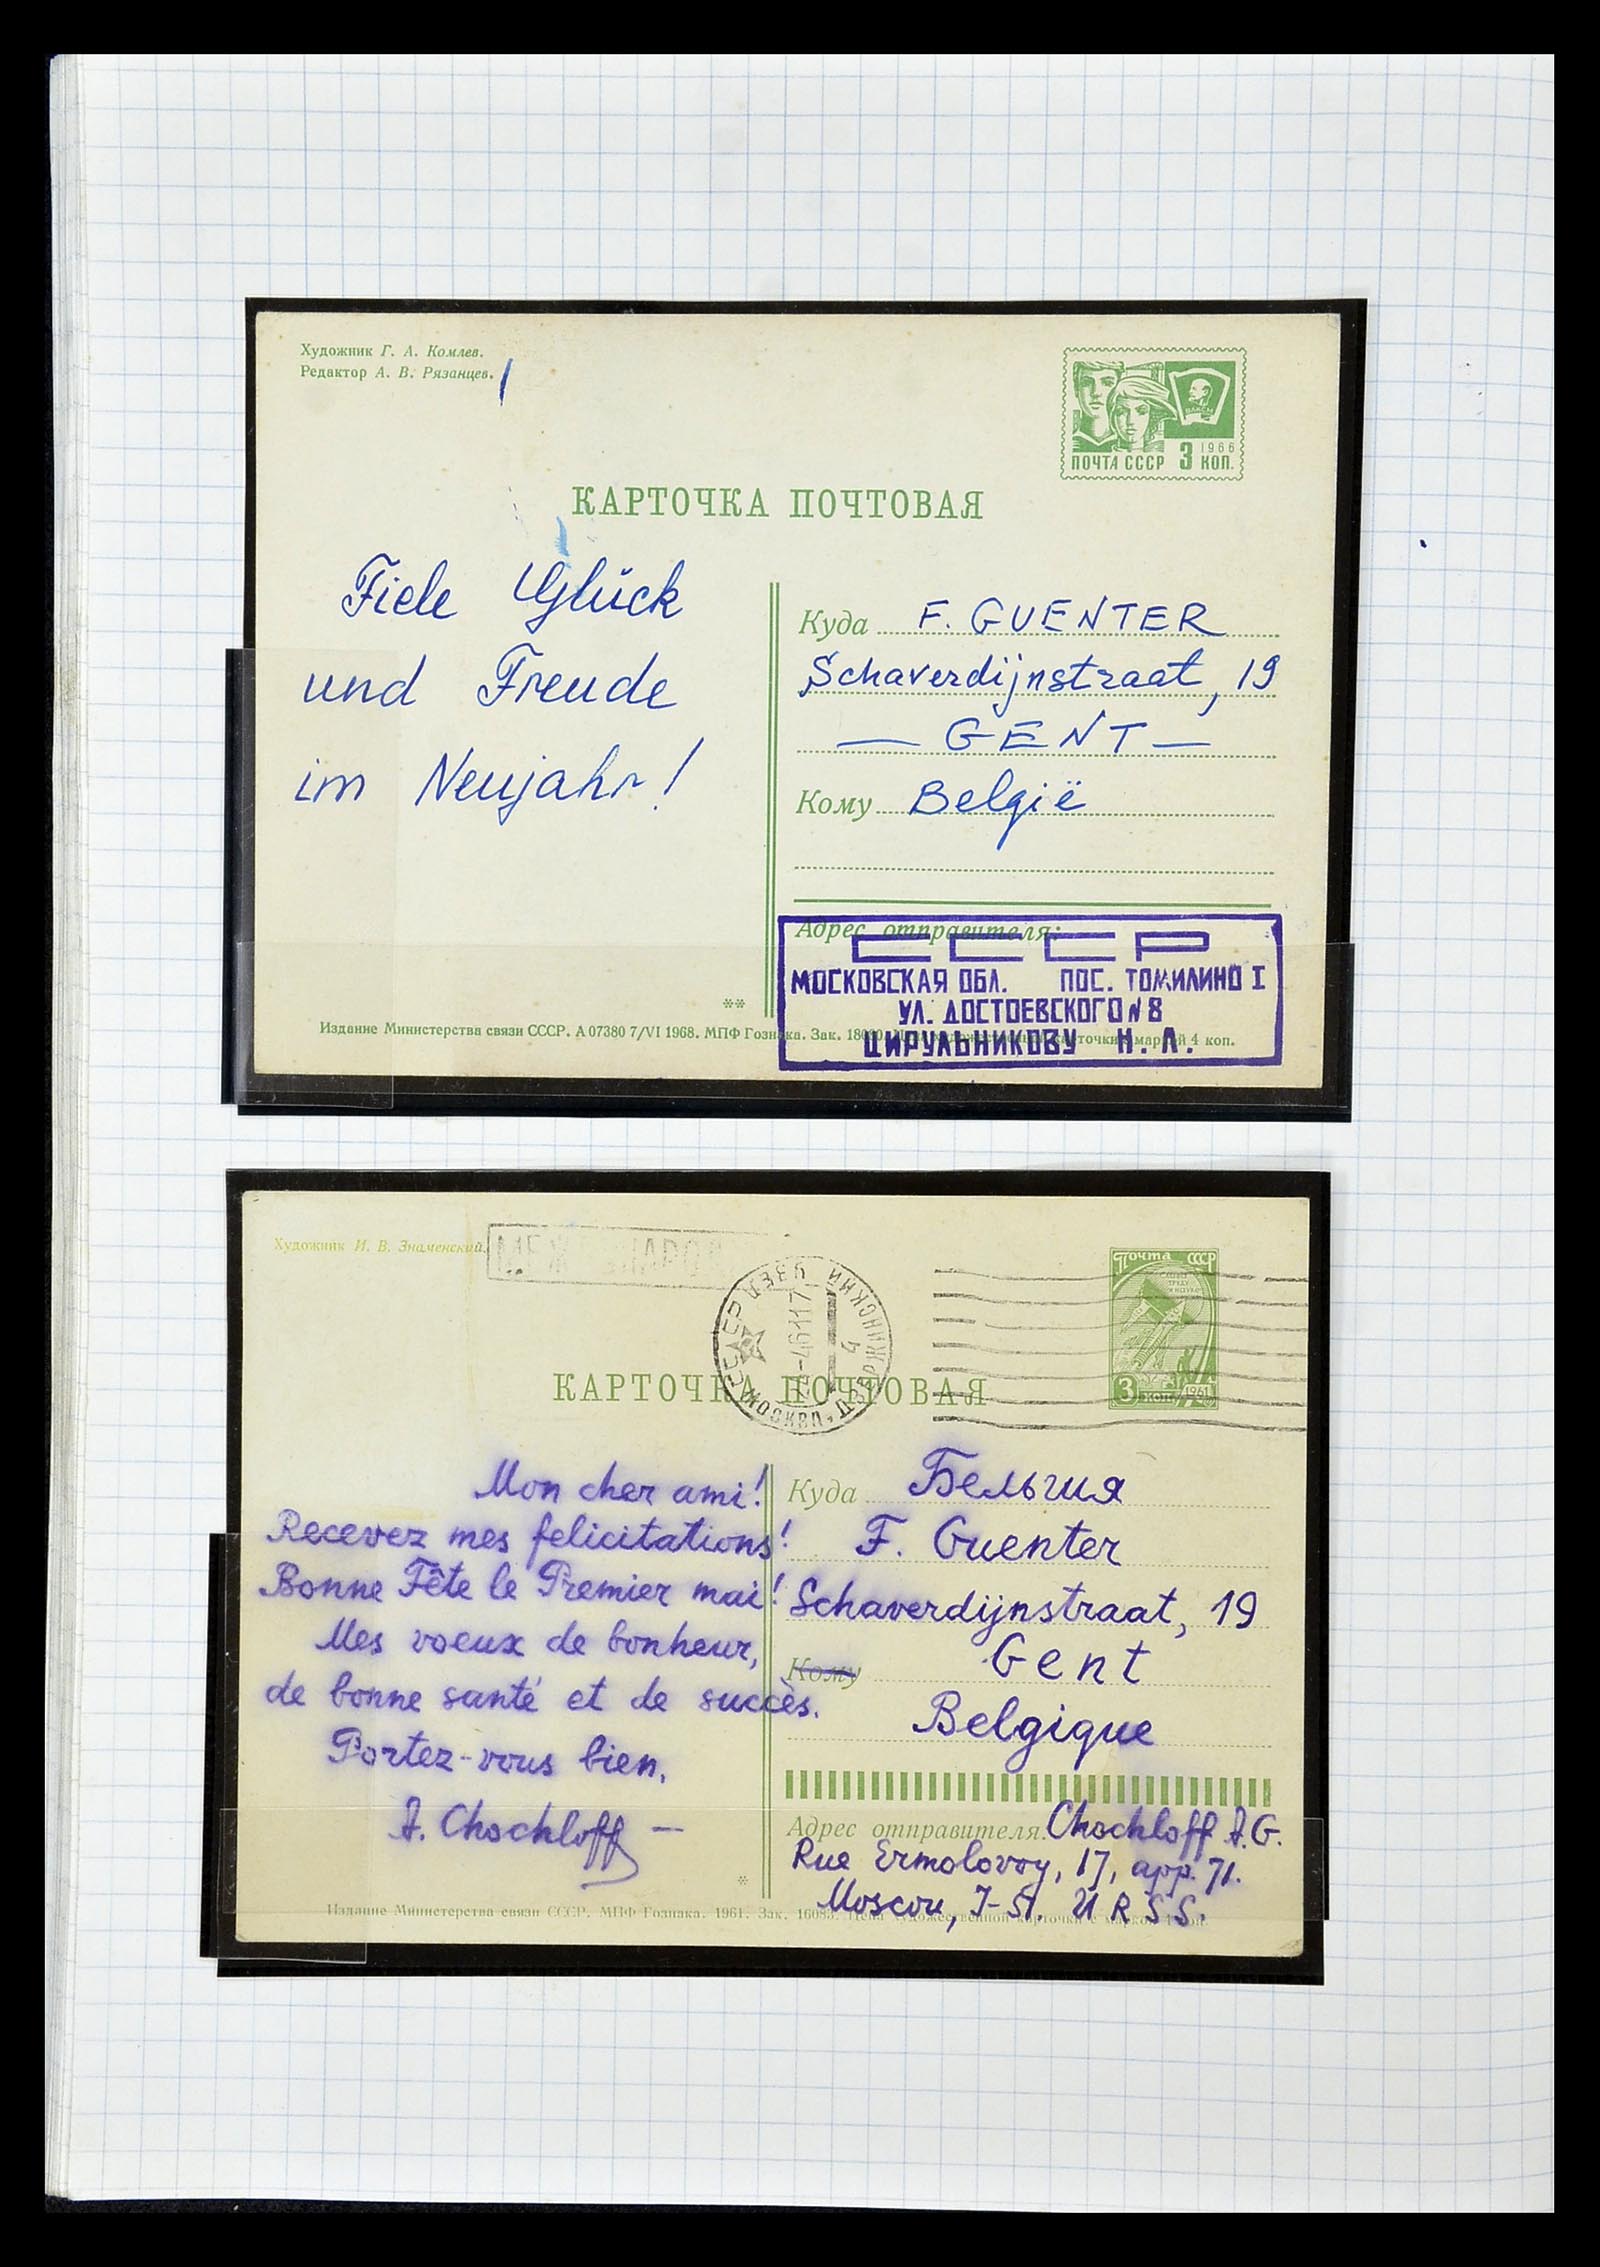 Художник Г. А. Комлев.
Редактор А. В. Рязанцев.
ВЛКСМ
1966
ПОЧТА СССР 3 КОП.
КАРТОЧКА ПОЧТОВАЯ
Fiele Glück
und Freude
im Neujahr!
Куда F. GUENTER
Schaverdijnstraat, 19
— GENT —
Кому België
Адрес отправителя:
СССР
МОСКОВСКАЯ ОБЛ. ПОС. ТОМИЛИНО I
УЛ. ДОСТОЕВСКОГО N 8
ЦИРУЛЬНИКОВУ Н. Л.
**
Издание Министерства связи СССР. А 07380 7/VI 1968. МПФ Гознака. Зак. карточки с маркой 4 коп.
Художник И. В. Знаменский.
Почта СССР
3 коп. 1961
СССР МОСКВА, ДЗЕРЖИНСКИЙ УЗЕЛ
4
КАРТОЧКА ПОЧТОВАЯ
Mon cher ami!
Recevez mes felicitations!
Bonne Fête le Premier mai!
Mes voeux de bonheur,
de bonne santé et de succès.
Portez-vous bien.
A. Chochloff —
Куда Бельгия
F. Guenter
Schaverdijnstraat, 19
Кому Gent
Belgique
Адрес отправителя: Chochloff A.G.
Rue Ermolovoy, 17, app. 71.
Moscou, I-51. U R S S.
*
Издание Министерства связи СССР. МПФ Гознака. 1961. Зак.